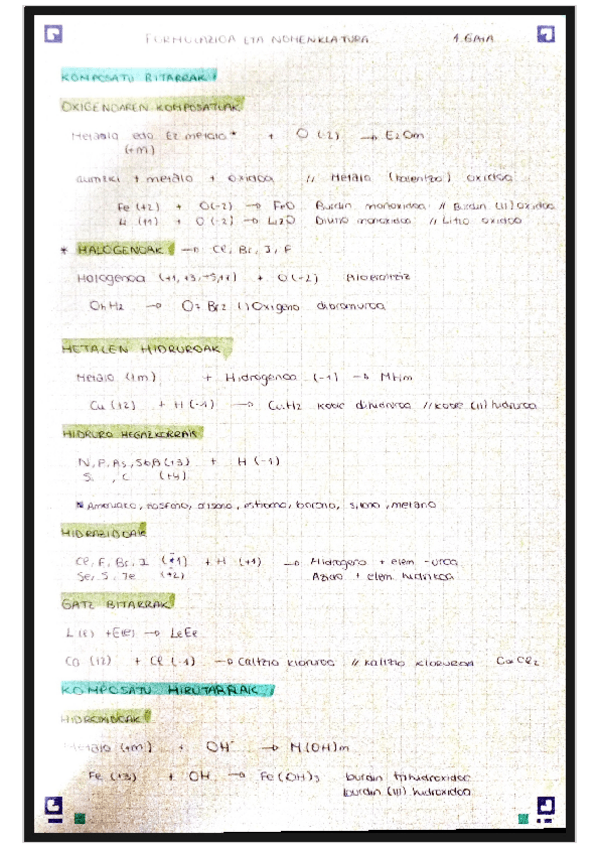 FORMULAZIOA ETA NOMENKLATURA 1.GAIA
KOMPOSATU BITARRAK
OXIGENOAREN KOMPOSATUAK
Metala edo Ez metalo * + O (-2) → E2Om
(+m)
aurrizki + metalo + oxidoa // Metalo (balentzia) oxidoa
Fe (+2) + O(-2) → FeO Burdin monoxidoa // Burdin (II) oxidoa
Li (+1) + O (-2) → Li2O Dilitio monoxidoa // Litio oxidoa
* HALOGENOAK → Cl, Br, I, F
Halogenoa (+1,+3,+5,+7) + O(-2) Alderantziz
→ O Br2 Oxigeno dibromuroa
METALEN HIDRUROAK
Metalo (+m) + Hidrogenoa (-1) → MHm
Cu (+2) + H (-1) → CuH2 kobre dihidruroa // kobre (II) hidruroa
HIDRURO HEGAZKORRAK
N, P, As, Sb, B (+3) + H (-1)
Si, C (+4)
Amoniako, fosfano, arsano, estibano, borano, silano, metano
HIDRAZIDOAK
Cl, F, Br, I (-1) + H (+1) → Hidrogeno + elem -uroa
Se, S, Te (-2) Azido + elem. hidrikoa
GATZ BITARRAK
Ca (+2) + Cl (-1) → Caltzio kloruroa // kaltzio kloruroa CaCl2
KOMPOSATU HIRUTARRAK
HIDROXIDOAK
Metalo (+m) + OH⁻ → M(OH)m
Fe (+3) + OH → Fe(OH)3 burdin trihidroxidoa
burdin (III) hidroxidoa